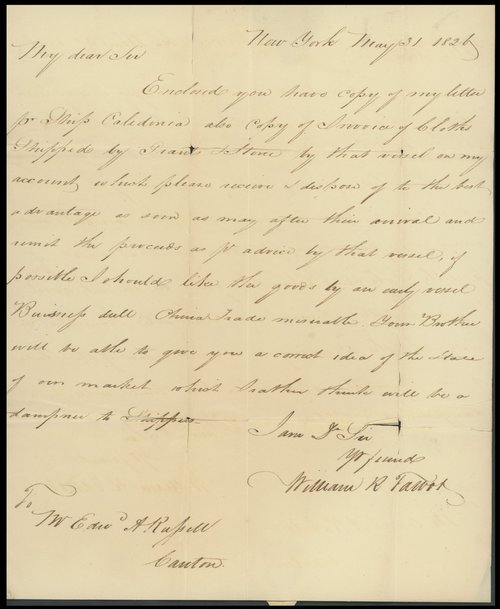 New York May 31 1826
My dear Sir
Enclosed you have copy of my letter
pr Ship Caledonia also copy of Invoice of Cloths
Shipped by Grant & Stone by that vessel on my
account, which please receive & dispose of to the best
advantage as soon as may after their arrival and
remit the proceeds as pr advice by that vessel, if
possible I should like the goods by an early vessel
Buisness dull China Trade miserable Your Brother
will be able to give you a correct idea of the State
of our market which I rather think will be a
dampner to Shippers
I am Dr Sir
Yr friend
William R Talbot
To
Mr Edwd A Russell
Canton